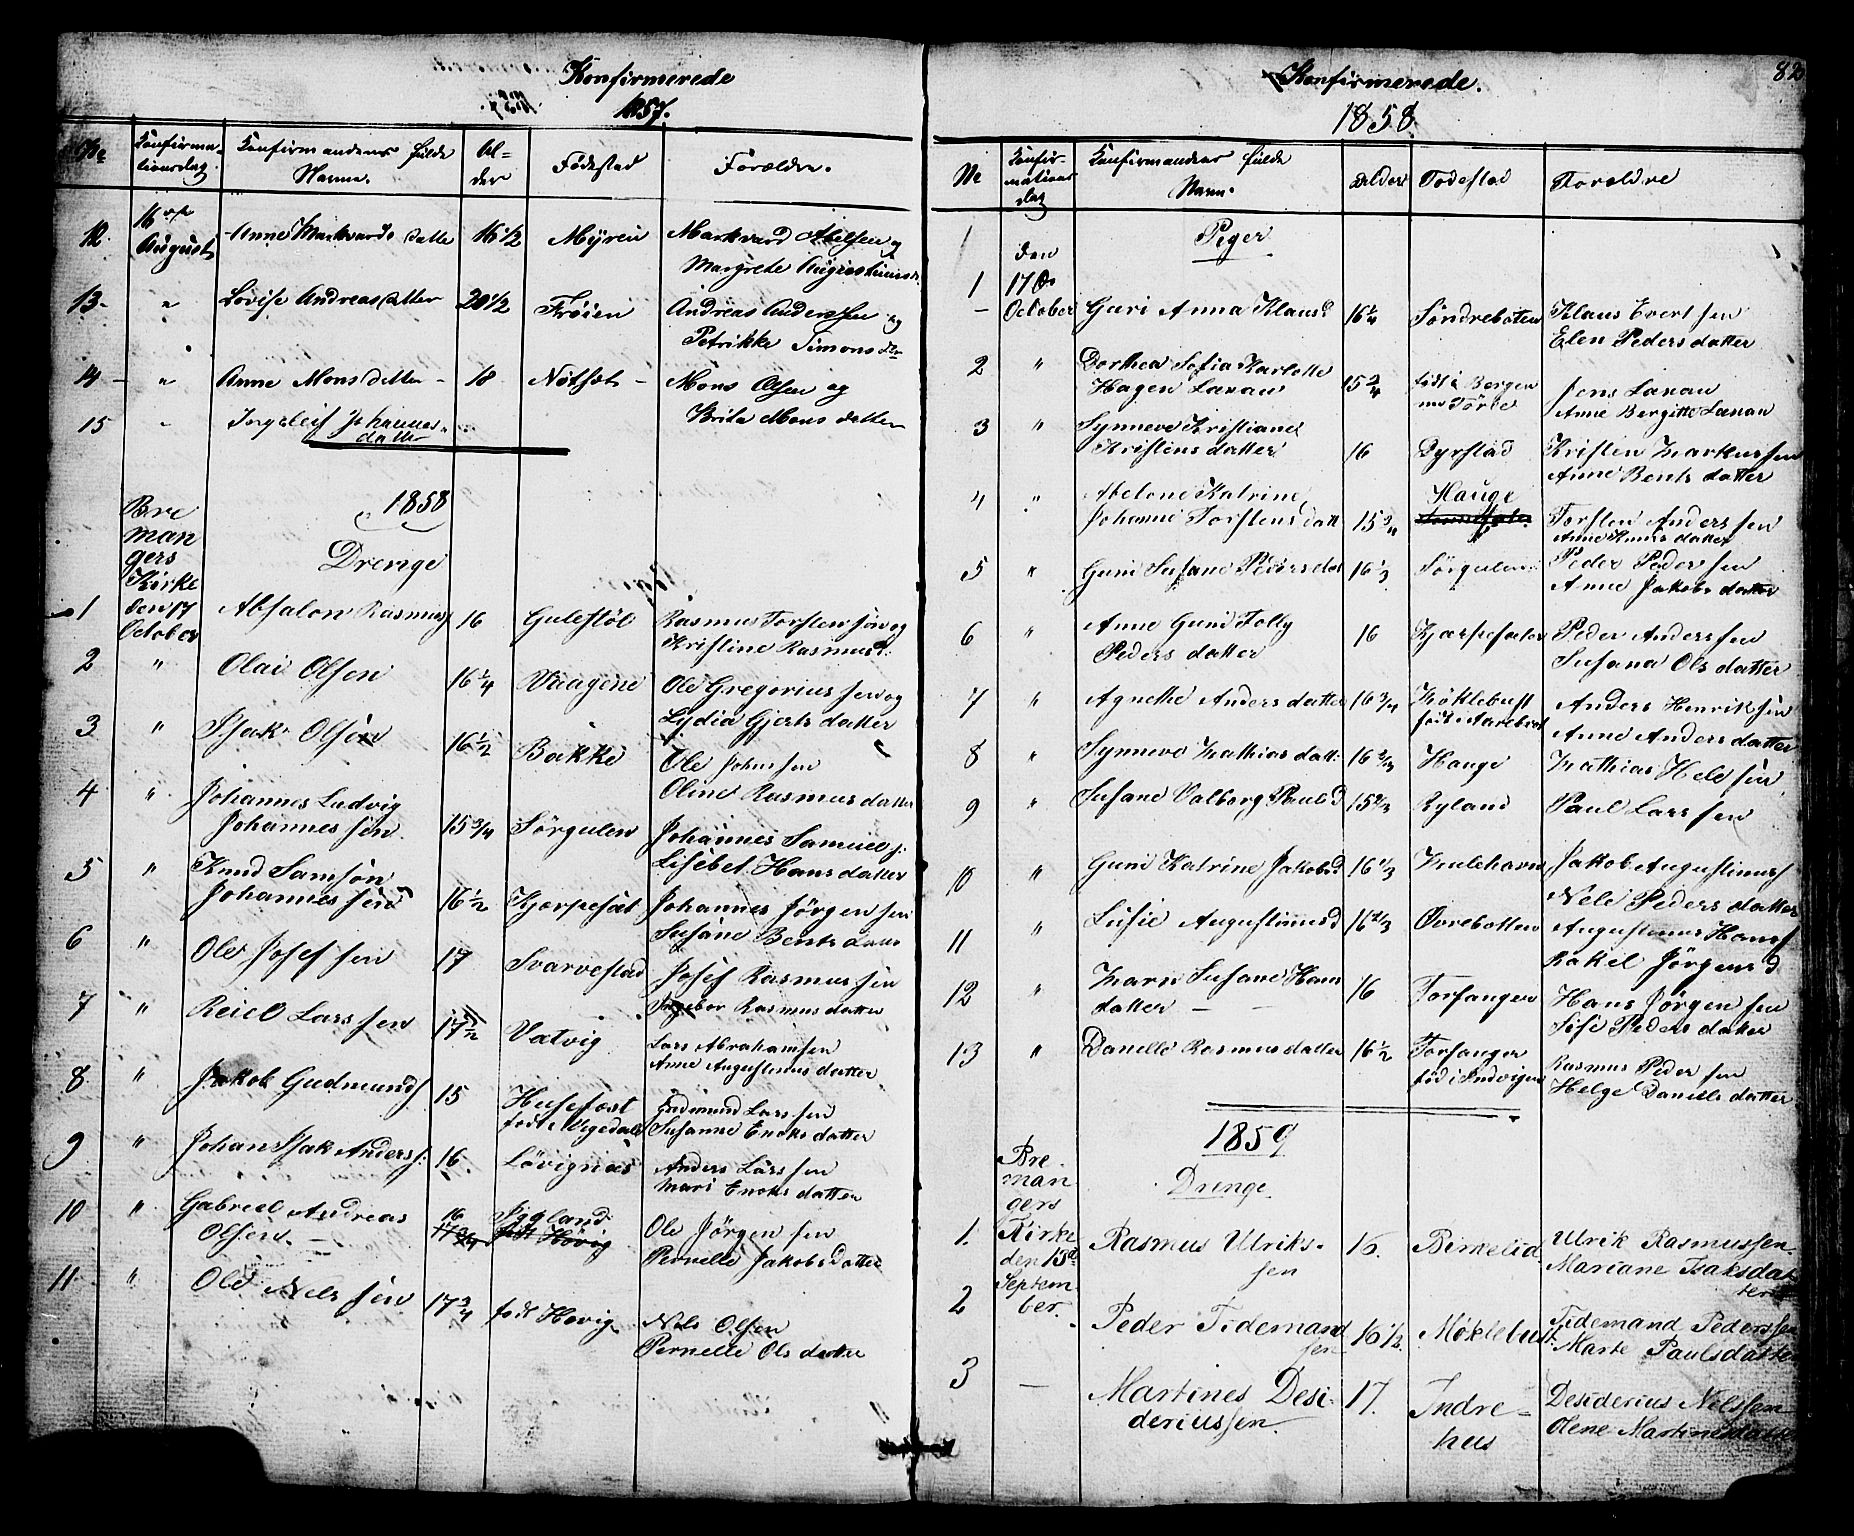 Konfirmerede
1857.
No
Konfirma-
tionsdag
Konfirmandens fulde
Navne.
Al-
der
Födestad
Forældre.
12. 16de August Anne Markvards datter 16 1/2 Myren Markvard Axelsen og
Margrete Augustinusd.
13. " Lovise Andreasdatter 20 1/2 Fröien Andreas Anderssen og
Petrikke Simonsdr
14 - " Anne Monsdatter - 18 Nötset - Mons Olsen og
Brite Monsdatter
15 " Ingeleif Johannes-
datter
1858
Drenge
Bre
man
gers
Kirke
den 17
October
1 Absalon Rasmuss 16 Gulestöl Rasmus Torstensen og
Kristine Rasmusd.
2 " Olai Olsen 16 1/4 Vaagene Ole Gregoriussen og
Lydia Gjertsdatter
3 " Isak Olsen 16 1/2 Bakke Ole Johnssen
Oline Rasmusdatter
4 " Johannes Ludvig
Johannessen. 15 3/4 Sörgulen Johannes Samuels:
Lisebet Hansdatter
5 " Knud Samson
Johannessen 16 1/2 Kjerpesæt Johannes Jörgensen
Susane Bents
6 " Ole Josefsen 17 Svarvestad Josef Rasmussen
Ingebor Rasmusdatter
7 " Reiel Larssen 17 1/2 Vatvig Lars Abrahamsen
Anne Augustinusdatter
8 " Jakob Gudmunds 15 Husefest Gudmund Larssen
födt i Susanne Enoksdatter
9 " Johan Isak Anderss: 16. Lövignæs Anders Larssen
Mari Enoksdatter
10 " Gabriel Andreas 16 Iggland
Olsen. - 17 födt Hövig Ole Jörgensen
Pernelle Jakobsdatter
11 " Ole Nelssen 17 3/4 födt Hovig Nels Olsen
Pernelle Olsdatter
82
Konfirmerede.
1858
No
Konfir-
mations
dag
Konfirmandens fulde
Navn.
Alder
Födestad
Foreldre
Piger
den
1 17de
October Guri Anna Klausd 16 1/4 Söndreboten Klaus Evertsen
Elen Pedersdatter
2 " Dorthea Sofia Karlotte
Hagen Lanau 15 3/4 födt i Bergen
Jens Lanau
Anne Bergitte Lanau
3 " Synneve Kristiane
Kristensdatter 16 Dyrstad Kristen Markussen
Anne Bentsdatter
4 " Abelone Katrine Hauge
Johanne Torstensdatt 15 3/4 Torsten Anderssen
Anne datter
5 " Guni Susane Peders 16 1/3 Sörgulen Peder Pedersen
Anne Jakobsdatter
6 " Anne Guni Folly
Pedersdatter 16 Kjærpesæter Peder Anderssen
Susana Olsdatter
7 " Agnethe Andersdatter 16 3/4 Möklebust
födt i Aarebrot Anders Henriksen
Anne Andersdatter
8 " Synneve Mathiasdatt: 16 2/3 Hauge Mathias Helesen
9 " Susane Valborg Paulsd 15 2/3 Ryland Paul Larssen
10 " Guni Katrine Jakobsd 16 1/3 Mulehavn Jakob Augustinuss
Nele Pedersdatter
11 " Lusie Augustinusd 16 2/3 Övrebotten Augustinus Hanss
Rakel Jörgensd
12 " Marn Susane Hans
datter - - 16 Torfanger Hans Jörgensen
Sise Pedersdatter
13 " Danelle Rasmusdatter 16 1/2 Torfanger
föd i Indvigen Rasmus Pedersen
Helge Danielsdatter
1859
Drenge.
Bre-
man
gers
Kirke
den 13d
Septem-
ber.
1. Rasmus Ulriks-
sen 16. Birkelid Ulrik Rasmussen
Mariane Isaksdat
ter
2 Peder Tidemand
sen 16 1/2. Möklebust Tidemand Pederssen
Marte Paulsdatter
3 - Martines Desi-
deriussen. 17. Indre-
hus Desiderius Nelssen
Olene Martinusdatt